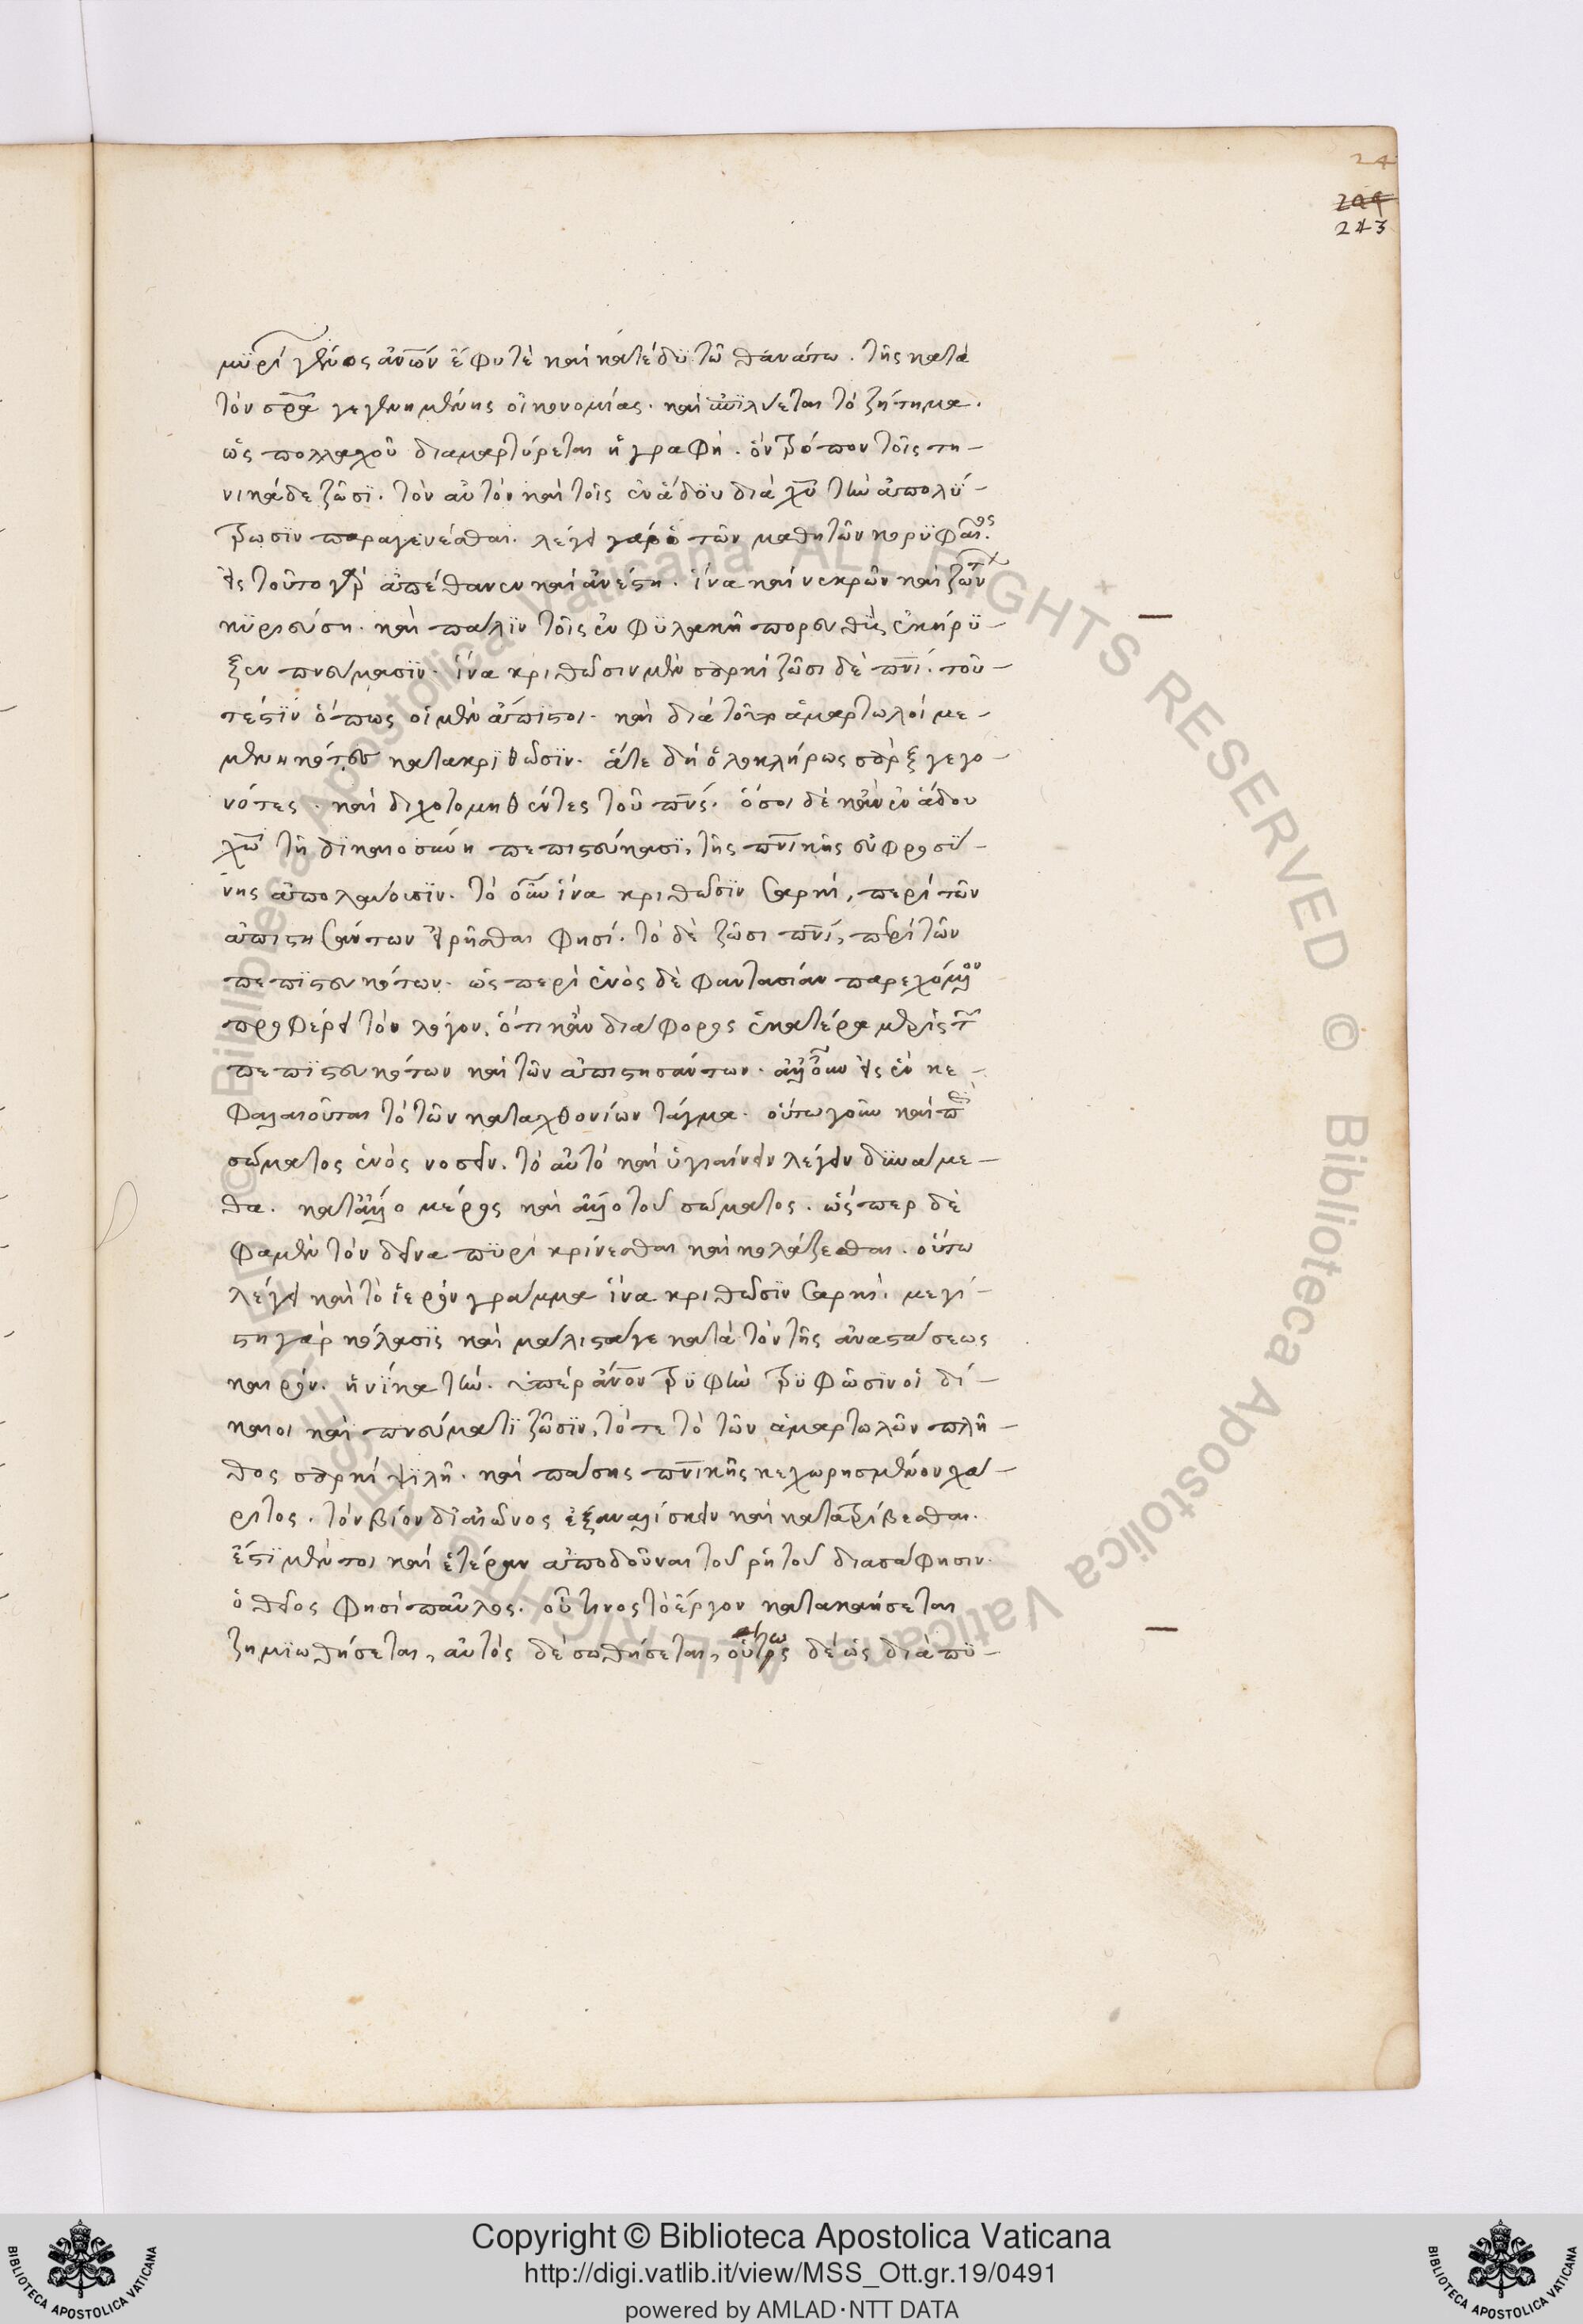 24
244
243
μϋρί γένος ἀν̅ων ἔφυτὲ καὶ κατέδϋ τῶ θανάτω. τῆς κατὰ
τὸν σρ̅α γεγενημένης οἰκονομίας. καὶ ἐπϊλύεται τὸ ζήτημα.
ὡς πολλαχοῦ διαμαρτύρεται ἡ γραφὴ. ὃν τρόπον τοῖς τη-
νικάδε ζῶσϊ. τὸν αὐτὸν καὶ τοῖς ἐν ἅδου διὰ χ̅υ τὴν ἀπολύ-
τρωσϊν παραγενέσθαι. λέγει γὰρ ὁ τῶν μαθητῶν κορϋφαῖος.
εἰς τοῦτο γὰρ ἀπέθανεν καὶ ἀνέστη. ἵνα καὶ νεκρῶν καὶ ζώντων
κϋριεύση. καὶ πάλϊν τοῖς ἐν φϋλακῆ πορευθεὶς ἐκήρϋ-
ξεν πνεύμασϊν. ἵνα κριθῶσιν μὲν σαρκὶ ζῶσι δὲ πν̅ι. του-
τέστϊν ὅπως οἱ μὲν ἄπιστοι. καὶ διὰ τοῦτο ἁμαρτωλοί με-
μενηκότες κατακρϊθῶσϊν. ἅτε δὴ ὁλοκλήρως σὰρξ γεγο-
νότες. καὶ διχοτομηθέντες τοῦ πν̅ς. ὅσοι δὲ κἂν ἐν ἅδου
χ̅ω τῆ δϊκαιοσύνη πεπιστεύκασϊ, τῆς πν̅ικῆς εὐφροσύ-
νης ἀπολαύωσϊν. τὸ οὖν ἵνα κριθῶσϊν σαρκὶ, περὶ τῶν
ἀπιστησάντων εἰρῆσθαι φησί. τὸ δὲ ζῶσι πν̅ι, περὶ τῶν
πεπϊστευκότων. ὡς περὶ ἑνὸς δὲ φαντασίαν παρεχόμενον
προφέρει τὸν λόγον, ὅτι κἂν διάφορος ἑκατέρα μερὶς τῶν
πεπϊστευκότων καὶ τῶν ἀπιστησάντων. ἀλλ' οὖν εἰς ἓν κε-
φαλαιοῦται τὸ τῶν καταχθονίων τάγμα. οὕτω γοῦν καὶ περὶ
σώματος ἑνὸς νοσεῖν. τὸ αὐτὸ καὶ ὑγιαίνειν λέγειν δϋνάμε-
θα. κατ' ἄλλο μέρος καὶ ἄλλο τοῦ σώματος. ὥσπερ δὲ
φαμὲν τὸν δεῖνα πϋρὶ κρίνεσθαι καὶ κολάζεσθαι. οὕτω
λέγει καὶ τὸ ἱερὸν γράμμα ἵνα κριθῶσϊν σαρκὶ. μεγί-
στη γὰρ κόλασϊς καὶ μάλιστά γε κατὰ τὸν τῆς ἀναστάσεως
καιρόν. ἡνίκα τὴν. ὑπὲρ ἄν̅ον τρϋφὴν τρϋφῶσϊν οἱ δί-
καιοι καὶ πνεύματϊ ζῶσϊν, τότε τὸ τῶν ἁμαρτωλῶν πλῆ-
θος σαρκὶ ψϊλῆ. καὶ πάσης πν̅ικῆς κεχωρησμένον χά-
ριτος. τὸν βίον δϊ' αἰῶνος ἐξαναλίσκειν καὶ κατατρίβεσθαι.
ἔστϊ μέντοι καὶ ἑτέραν ἀποδοῦναι τοῦ ρητοῦ διασάφησιν.
ὁ θεῖος φησὶ παῦλος. οὗ τινος τὸ ἔργον κατακαήσεται
ζημϊωθήσεται, αὐτὸς δὲ σωθήσεται, οὕτως δὲ ὡς διὰ πϋ-
Copyright © Biblioteca Apostolica Vaticana
http://digi.vatlib.it/view/MSS_Ott.gr.19/0491
powered by AMLAD·NTT DATA